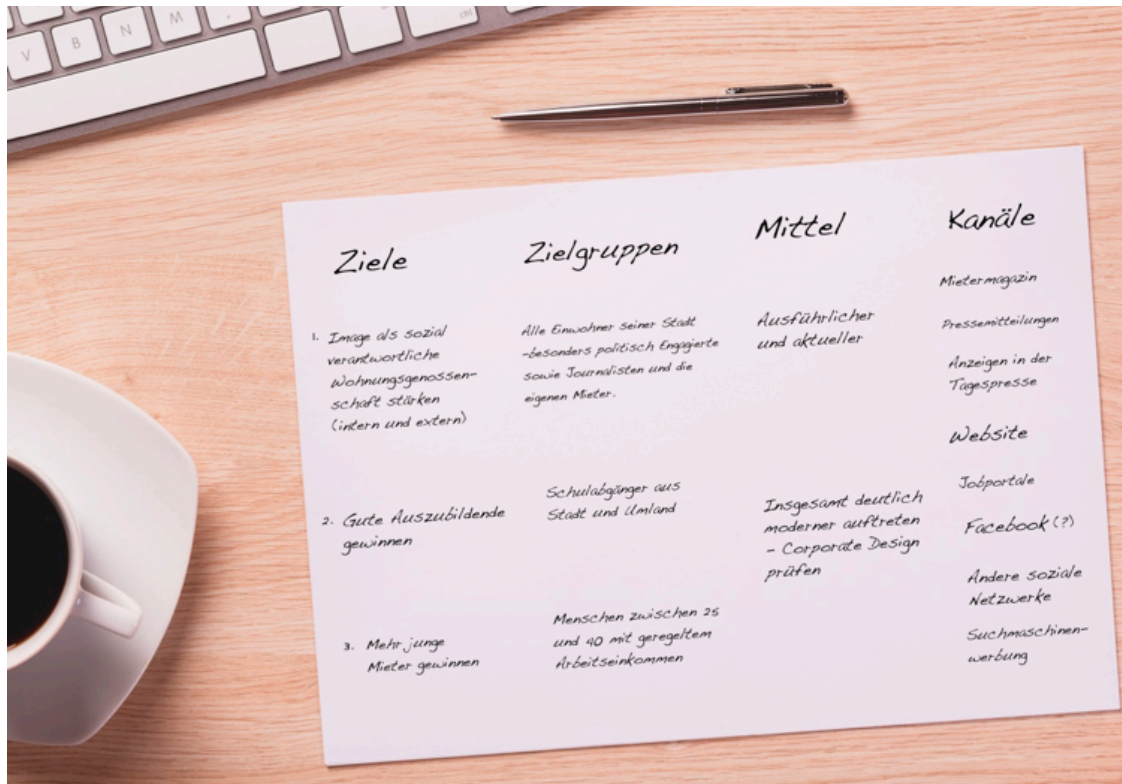 V
B
N
M
,
.
ctrl
Ziele
1. Image als sozial
verantwortliche
Wohnungsgenossen-
schaft stärken
(intern und extern)
2. Gute Auszubildende
gewinnen
3. Mehr junge
Mieter gewinnen
Zielgruppen
Alle Einwohner seiner Stadt
-besonders politisch Engagierte
sowie Journalisten und die
eigenen Mieter.
Schulabgänger aus
Stadt und Umland
Menschen zwischen 25
und 40 mit geregeltem
Arbeitseinkommen
Mittel
Ausführlicher
und aktueller
Insgesamt deutlich
moderner auftreten
- Corporate Design
prüfen
Kanäle
Mietermagazin
Pressemitteilungen
Anzeigen in der
Tagespresse
Website
Jobportale
Facebook (?)
Andere soziale
Netzwerke
Suchmaschinen-
werbung